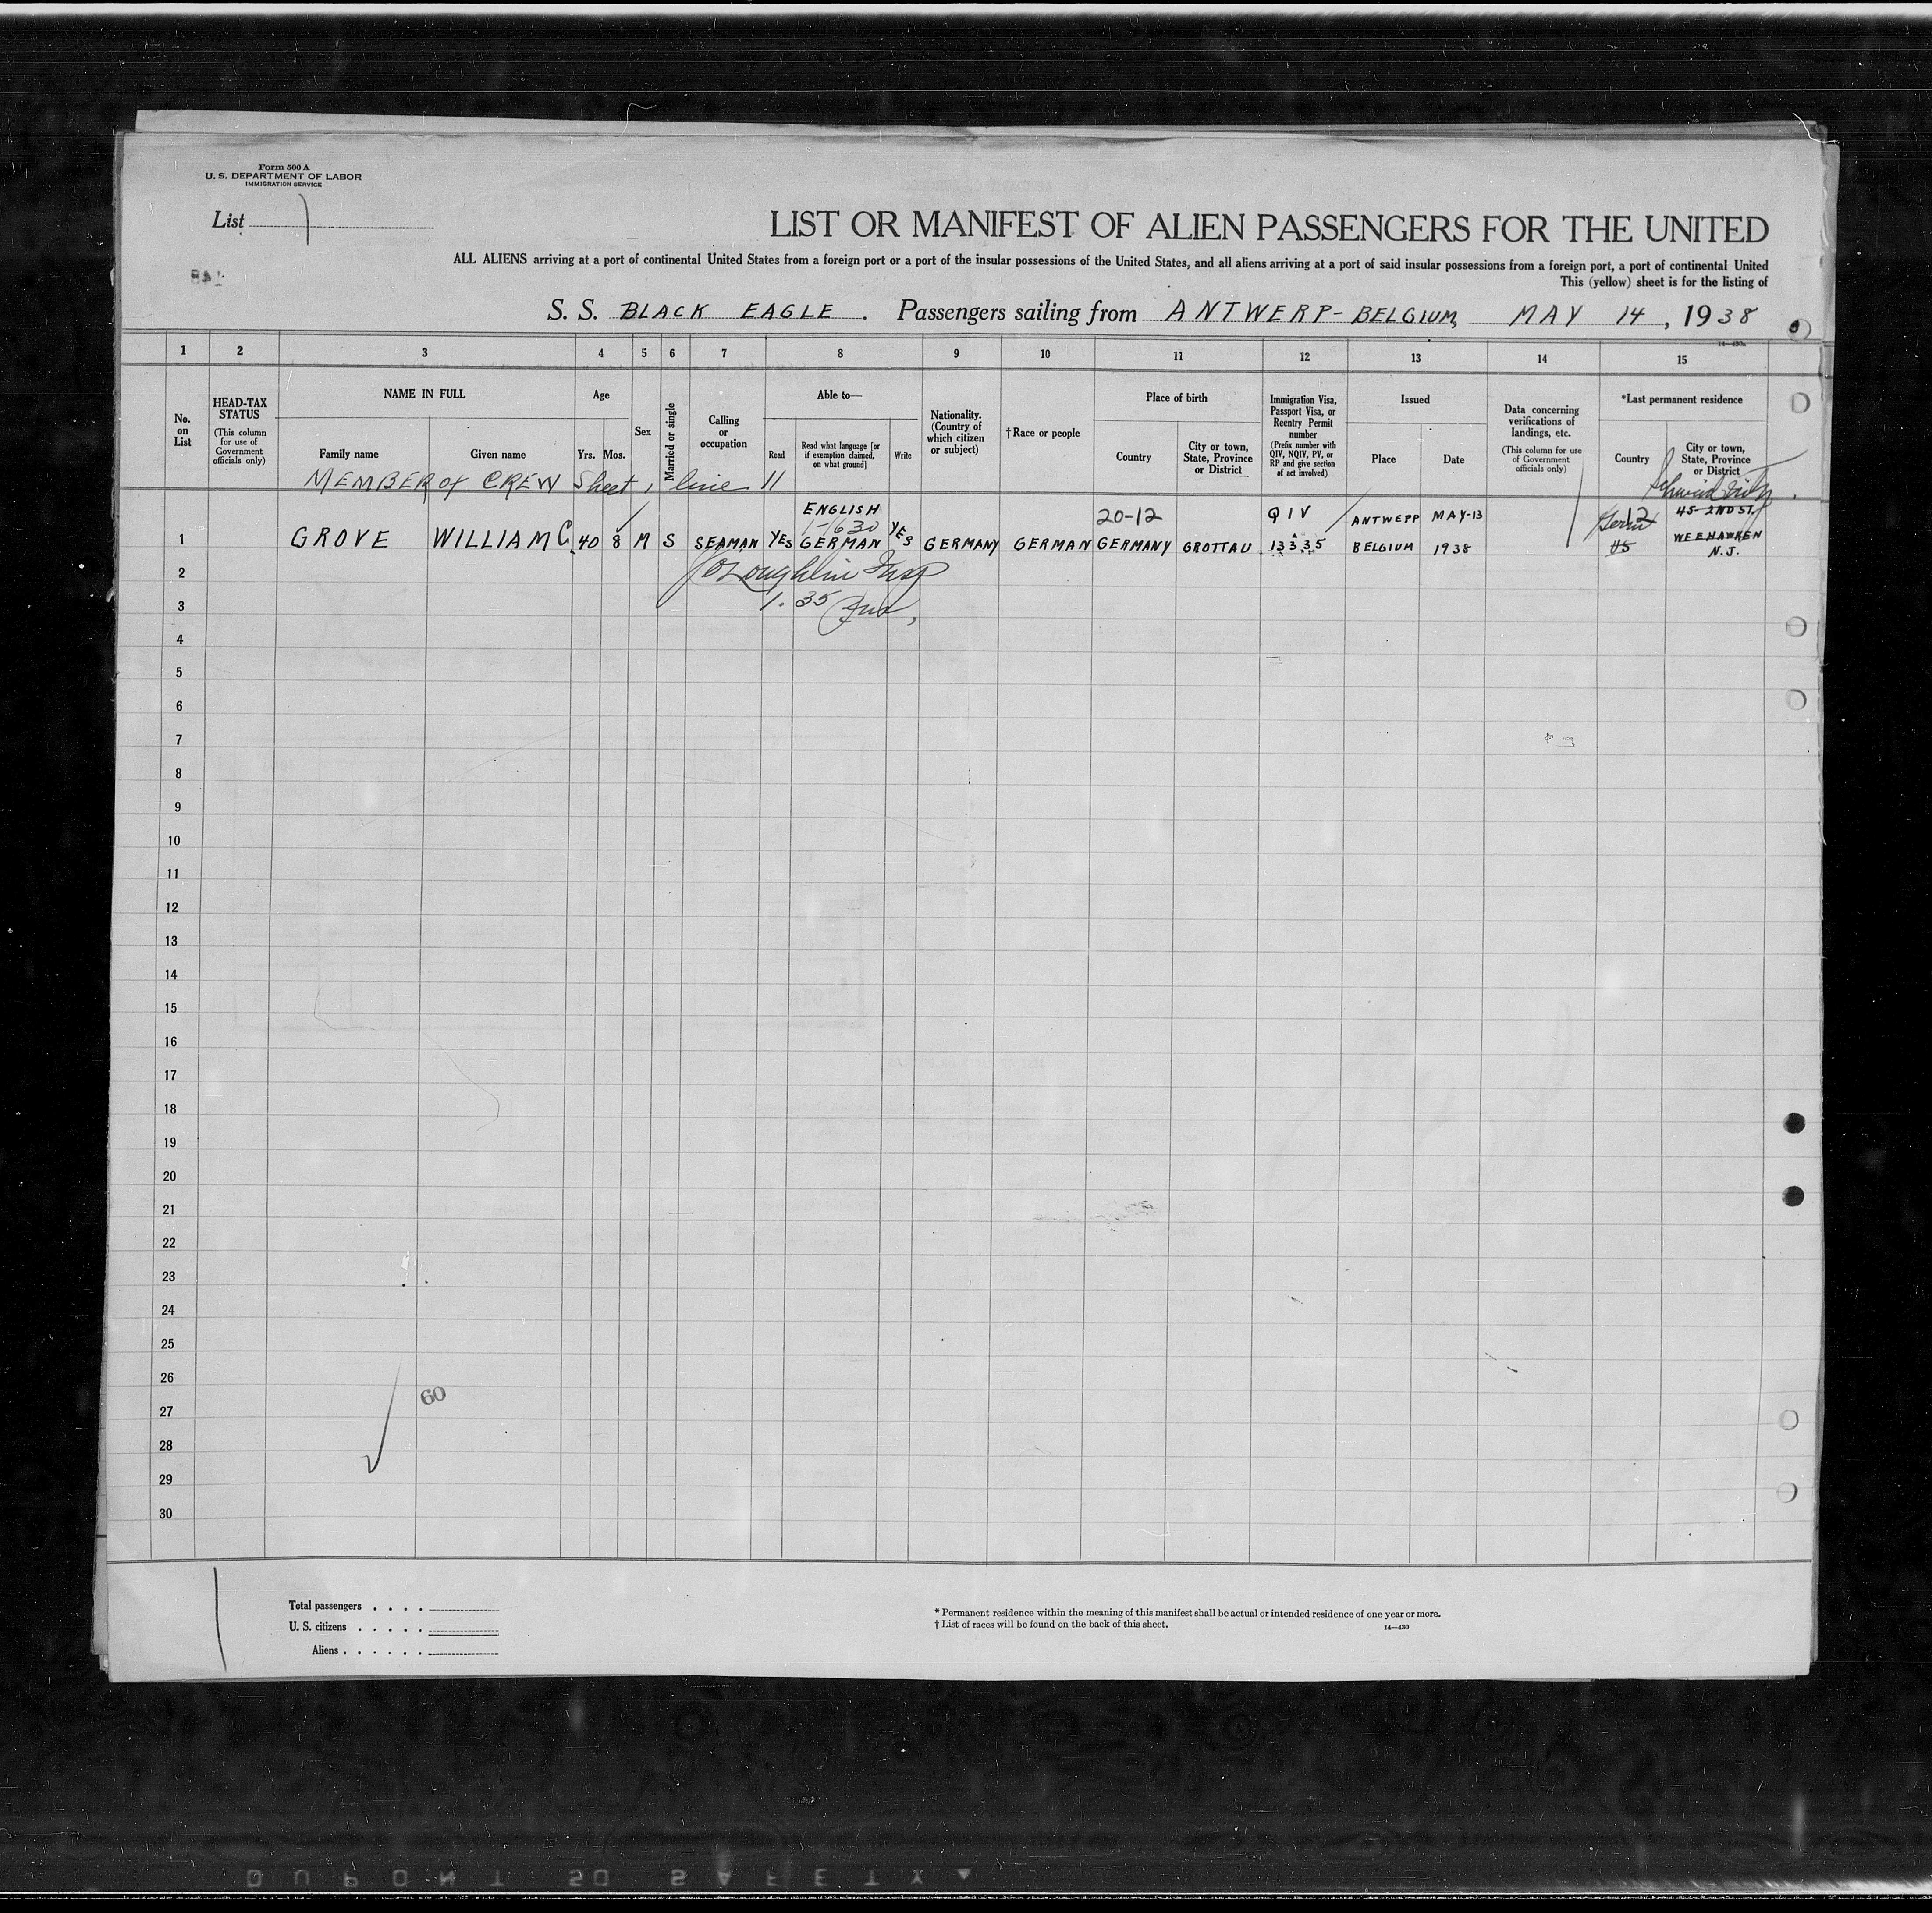 Form 500 A
U. S. DEPARTMENT OF LABOR
IMMIGRATION SERVICE
List 1
LIST OR MANIFEST OF ALIEN PASSENGERS FOR THE UNITED
ALL ALIENS arriving at a port of continental United States from a foreign port or a port of the insular possessions of the United States, and all aliens arriving at a port of said insular possessions from a foreign port, a port of continental United
This (yellow) sheet is for the listing of
S. S. BLACK EAGLE . Passengers sailing from ANTWERP - BELGIUM, MAY 14, 1938
14—430
1 2 3 4 5 6 7 8 9 10 11 12 13 14 15
No. on List
HEAD-TAX STATUS (This column for use of Government officials only)
NAME IN FULL
Family name
Given name
Age
Yrs. Mos.
Sex
Married or single
Calling or occupation
Able to—
Read
Read what language [or if exemption claimed, on what ground]
Write
Nationality. (Country of which citizen or subject)
† Race or people
Place of birth
Country
City or town, State, Province or District
Immigration Visa, Passport Visa, or Reentry Permit number (Prefix number with QIV, NQIV, PV, or RP and give section of act involved)
Issued
Place
Date
Data concerning verifications of landings, etc. (This column for use of Government officials only)
*Last permanent residence
Country
City or town, State, Province or District
MEMBER of CREW Sheet 1 line 11
ENGLISH 20-12 QIV ANTWERP MAY-13 12 45-2ND ST.
1-630 Germ
1 GROVE WILLIAM C. 40 8 M S SEAMAN YES GERMAN YES GERMANY GERMAN GERMANY GROTTAU 13335 BELGIUM 1938 US WEEHAWKEN N.J.
2 O'Loughlin Insp
3 1.35
4
5
6
7
8
9
10
11
12
13
14
15
16
17
18
19
20
21
22
23
24
25
26
60
27
28
29
30
Total passengers . . . .
U. S. citizens . . . . .
Aliens . . . . . .
* Permanent residence within the meaning of this manifest shall be actual or intended residence of one year or more.
† List of races will be found on the back of this sheet.
14—430
DUPONT 50 SAFETY